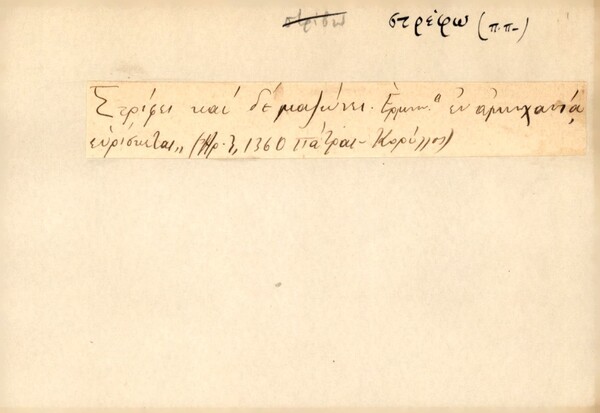 στρίβω στρέφω (π.π.)
Στρίφει καί δέ μαζώνει. Ἑρμην. "ἐν ἀμηχανίᾳ
εὑρίσκεται„ (Ἀρ. 1360 Πάτραι - Κορύλλος)